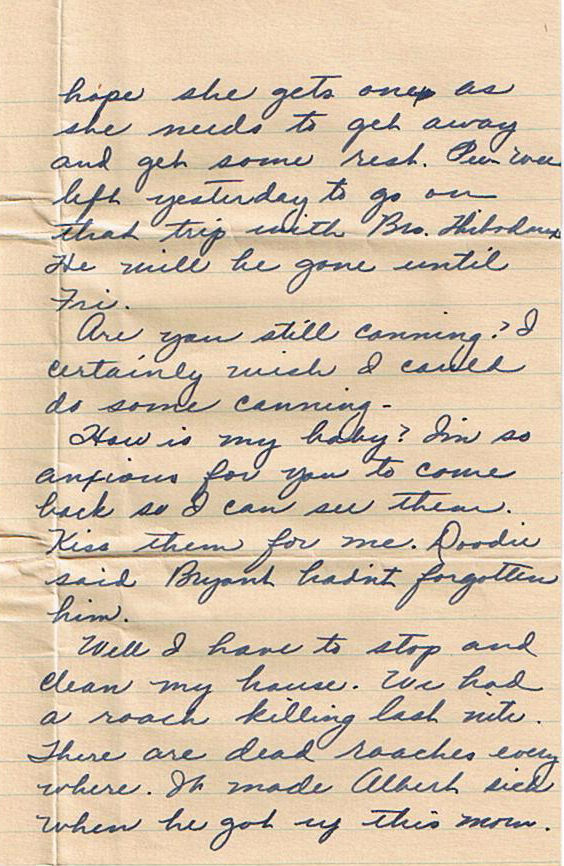 hope she gets one as
she needs to get away
and get some rest. Pee Wee
left yesterday to go on
that trip with Bro. Thibodaux
He will be gone until
Fri.
Are you still canning? I
certainly wish I could
do some canning-
How is my baby? I'm so
anxious for you to come
back so I can see them.
Kiss them for me. Doodie
said Bryant hadn't forgotten
him.
Well I have to stop and
clean my house. We had
a roach killing last nite.
There are dead roaches every
where. It made Albert sick
when he got up this morn.